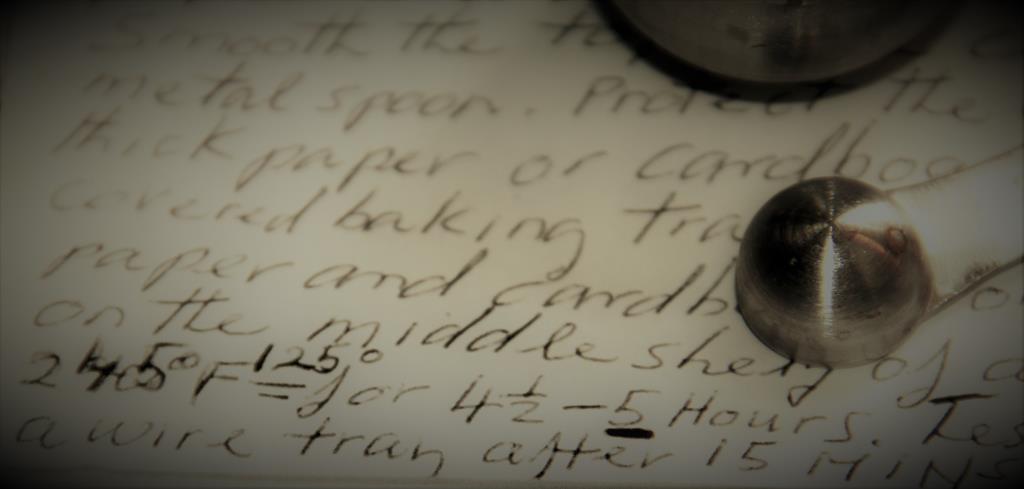 Smooth the
metal spoon. Protect the
thick paper or cardboa
covered baking tra
paper and cardb
on the middle shelf of a
F = 125° for 4 1/2 - 5 Hours. Tes
a wire tray after 15 MINS